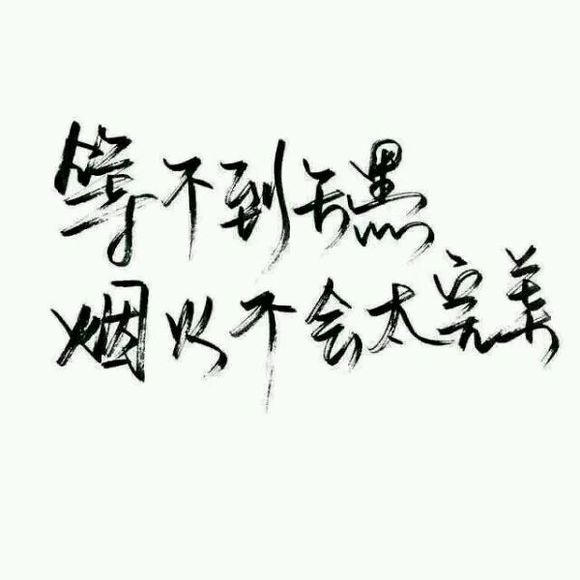 等不到天黑
烟火不会太完美